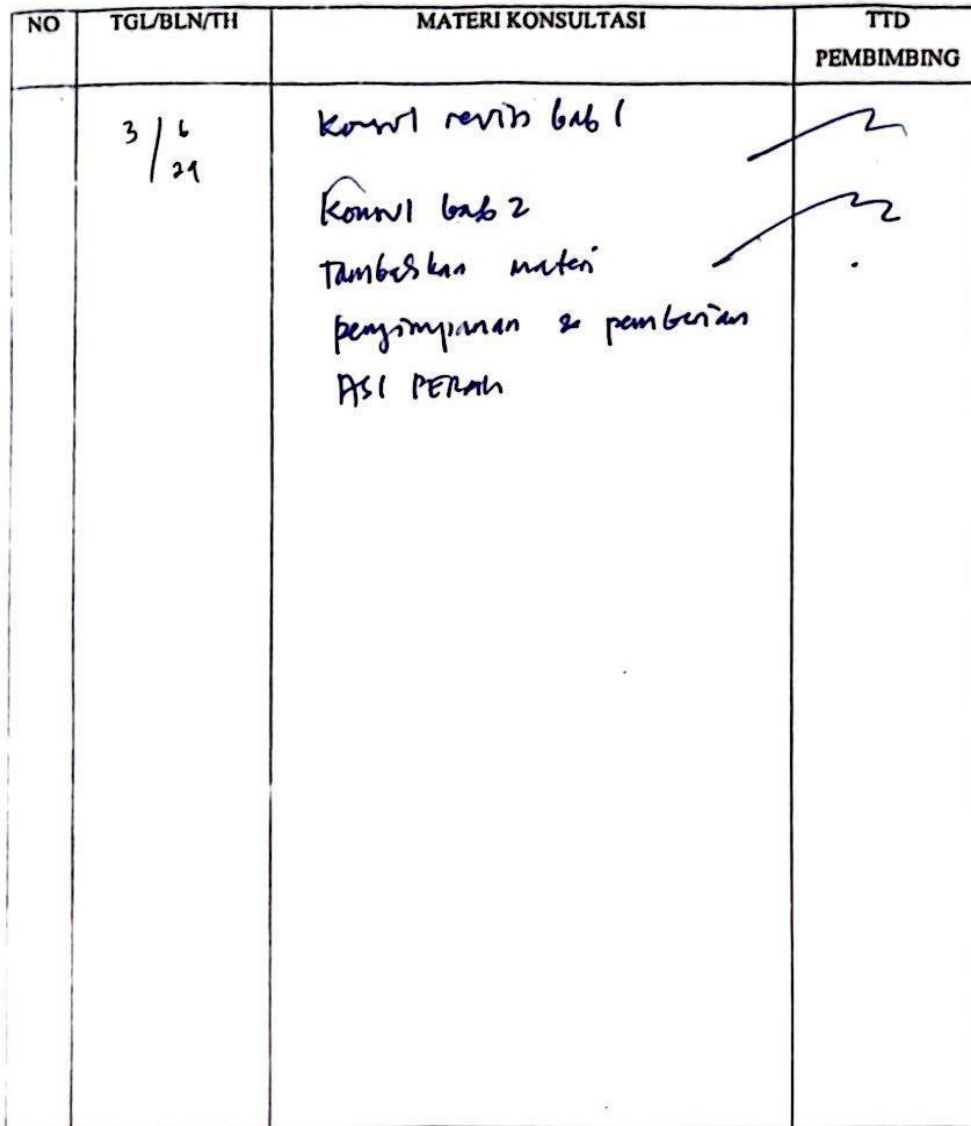 NO TGL/BLN/TH MATERI KONSULTASI TTD
PEMBIMBING
3/6 Konsul revisi bab 1
24
Konsul bab 2
Tambahkan materi
penyimpanan & pemberian
ASI PERAH